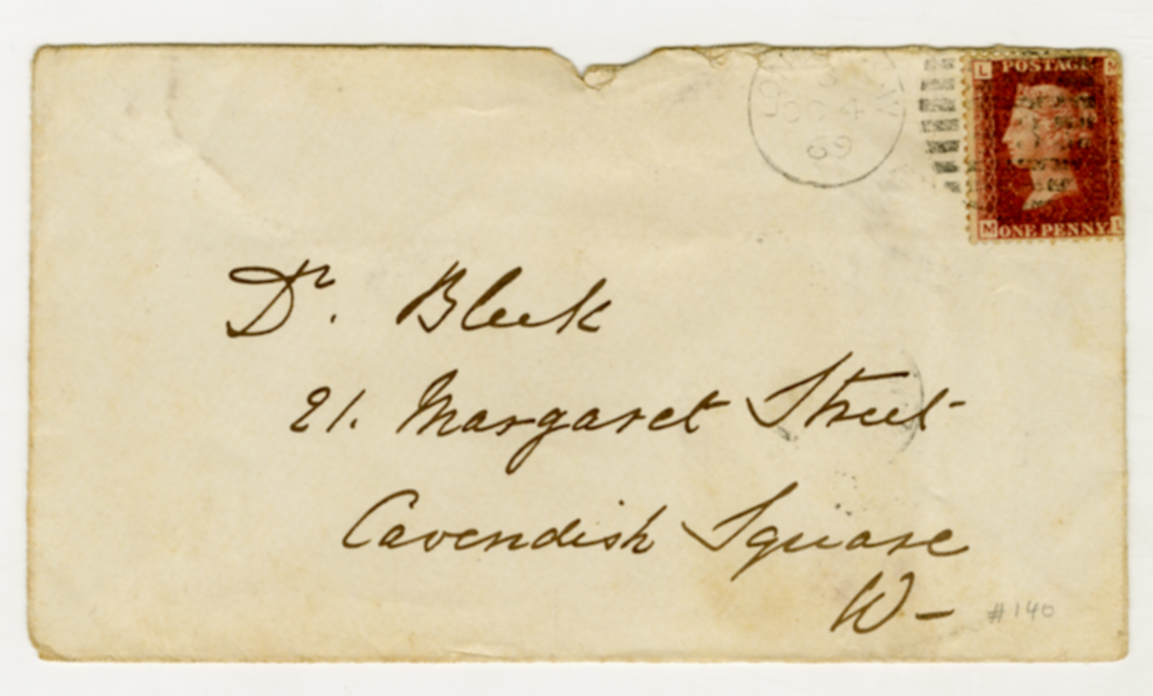 L POSTAGE
LONDON W
OC 4
69
M ONE PENNY L
Dr. Bleek
21. Margaret Street
Cavendish Square
W—
#140